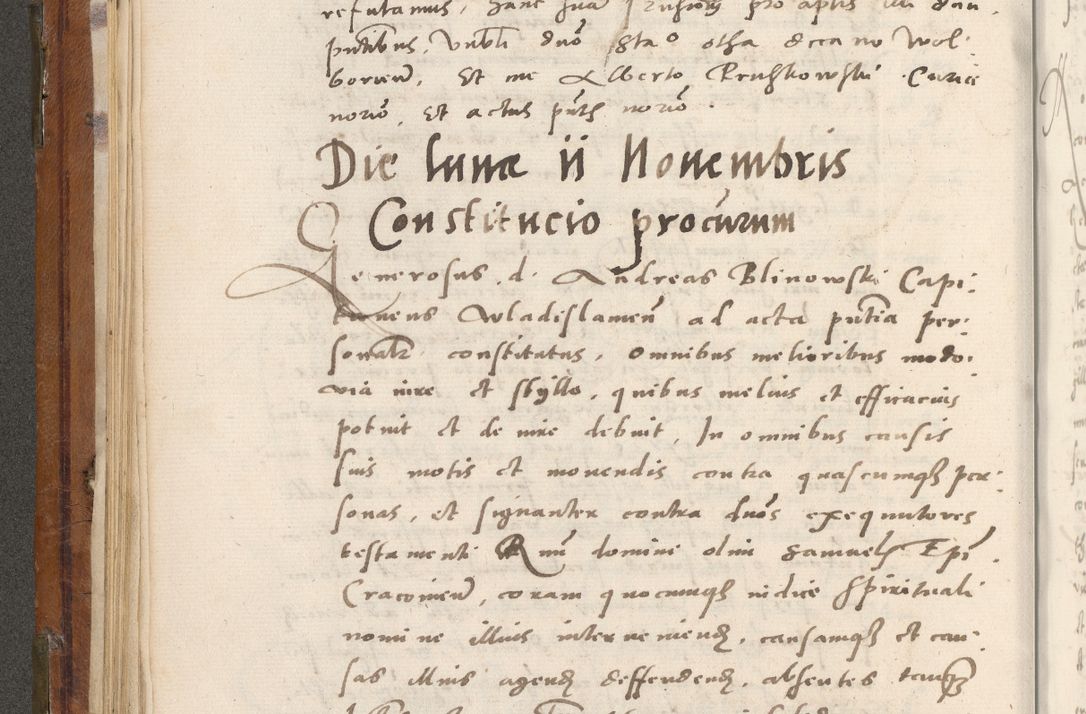 refutamus,
putibus, Vnbli duo sta° otha decano Wol:
borien, Et me Alberto Kruszkowski Curie
norio, Et actus pnts norio.
Die lunæ ii Nouembris
Constitucio procurum
Generosus d. Andreas Blinowski Capi:
taneus Wladislauien ad acta pntia per:
sonalr constitutus, omnibus melioribus modo:
via iure et styllo, quibus melius et efficacius
potuit et de iure debuit, In omnibus causis
suis motis et mouendis contra quascumqz per:
sonas, et signanter contra dnos exequutores
testamenti Rmi domini olim Samuelis Epi
Cracouien, coram quocumqz iudice spirituali
nomine illius interueniendi, causamqz et cau:
sas illius agendi deffendendi, absentes tanqz